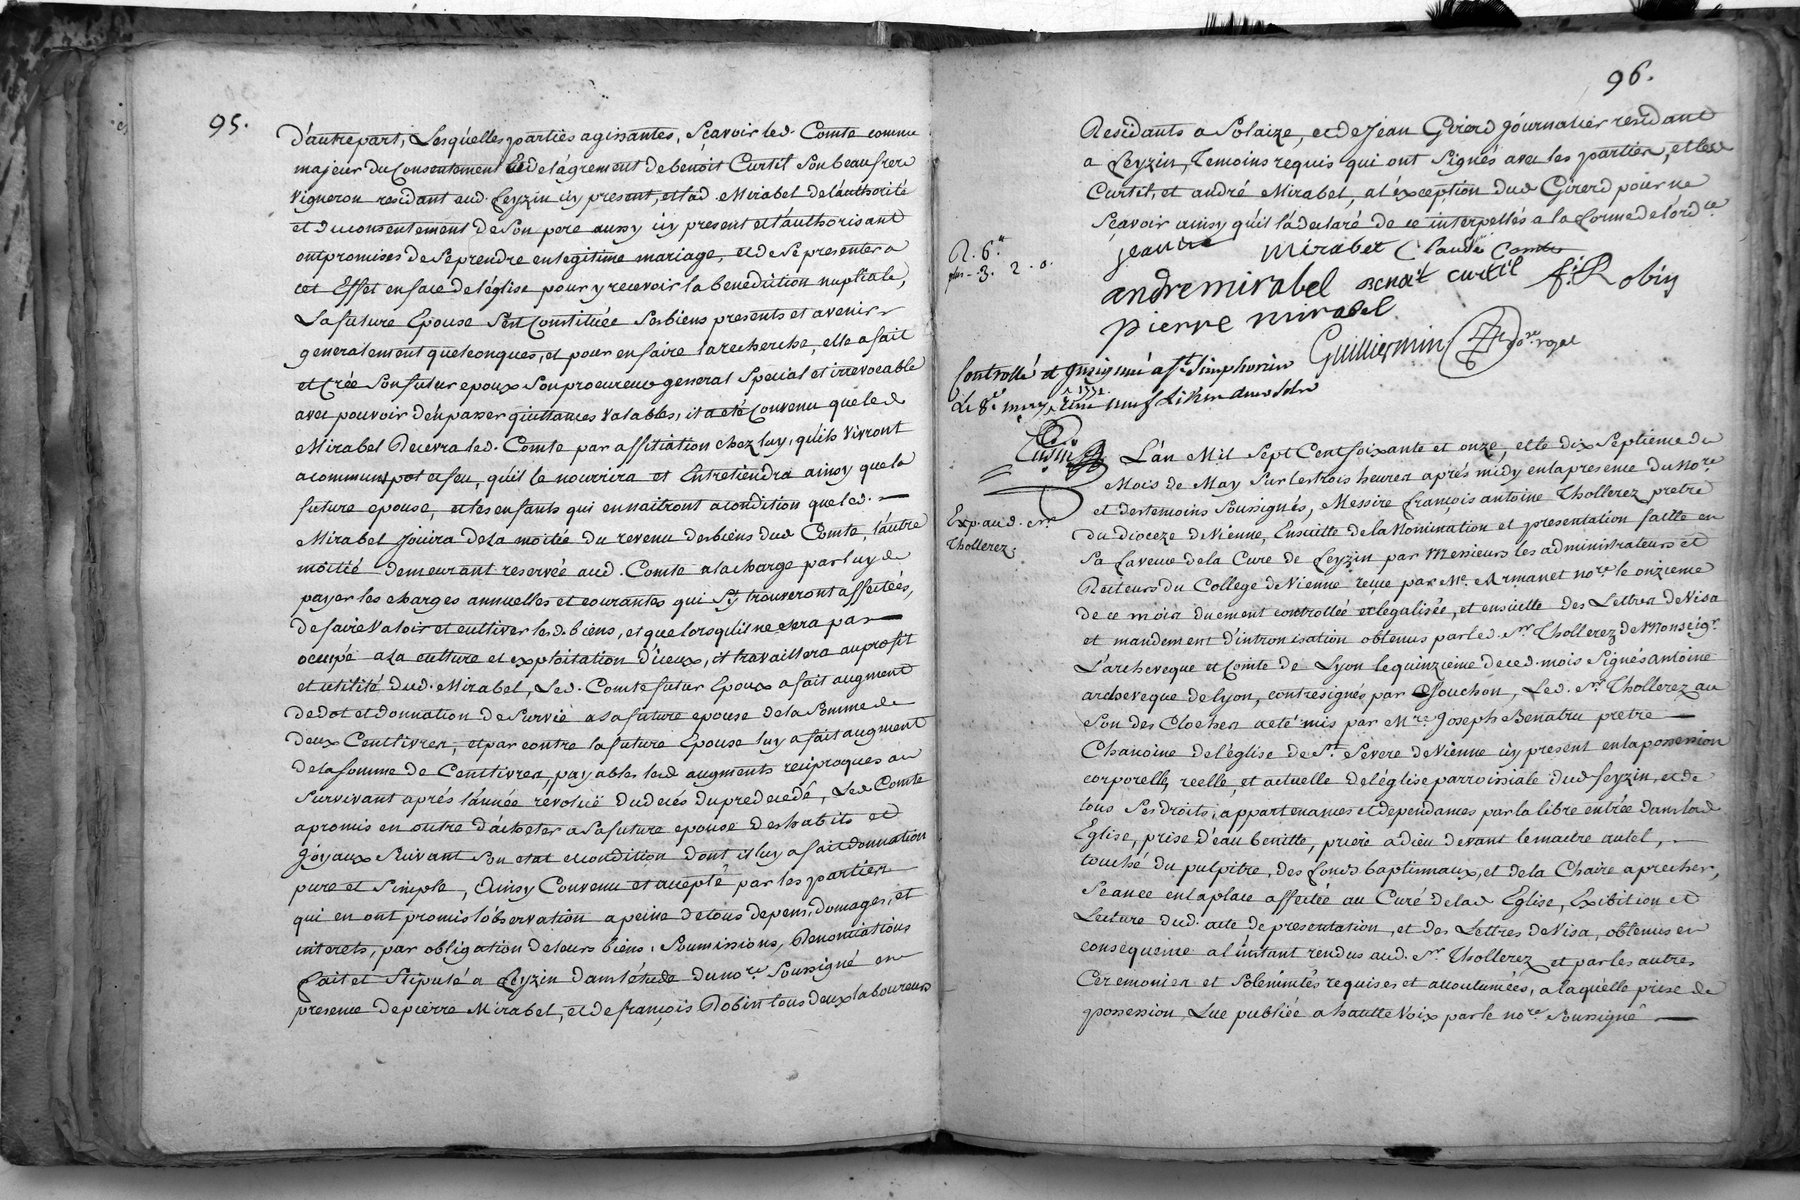 95.
d'autre part, Lesquelles parties agissantes, Sçavoir led. Comte comme
majeur du Consentement et de l'agrement de benoit Curtil Son beau frere
Vigneron residant aud. feyzin icy present, et lad Mirabel de l'authorité
et du consentement de Son pere aussy icy present et l'authorisant
ont promises de Se prendre en legitime mariage, et de Se presenter a
cet Effet en face de l'église pour y recevoir la benediction nuptiale,
La future Epouse S'est Constituée Ses biens presents et avenir
generalement quelconques, et pour en faire la recherche, elle a fait
et Crée Son futur epoux Son procureur general Special et irrevocable
avec pouvoir d'en passer quittances Valables, il a eté Convenu que led
Mirabel Recevra led. Comte par affiliation chez luy, qu'ils Vivront
a commun pot et feu, qu'il le nourrira et Entretiendra ainsy que la
future epouse, et les enfants qui en naitront a condition que led.
Mirabel Jouira de la moitié du revenu des biens dud Comte, l'autre
moitié demeurant reservée aud. Comte a la charge par luy de
payer les charges annuelles et courantes qui S'y trouveront affectées,
de faire Valoir et cultiver lesd. biens, et que lorsqu'il ne sera pas
occupé a la culture et exploitation d'iceux, il travaillera au profit
et utilité dud. Mirabel, Led. Comte futur Epoux a fait augment
de dot et donnation de Survie a Sa future epouse de la Somme de
deux Cent livres, et par contre la future Epouse luy a fait augment
de la Somme de Cent livres, payables lesd augments reciproques au
Survivant aprés l'année revolüe du decés du predecedé, Led Comte
a promis en outre d'acheter a Sa future epouse des habits et
Joyaux Suivant Son etat et condition dont il luy a fait donnation
pure et Simple, Ainsy Convenu et accepté par les parties
qui en ont promis l'observation a peine de tous depens, domages, et
interets, par obligation de leurs biens, Soumissions, Renonciations
fait et Stipulé a feyzin dans l'étude du no.re Soussigné en
presence de pierre Mirabel, et de françois Robin tous deux laboureurs
96.
Residants a Solaize, et de Jean Girerd Journalier residant
a feyzin, Temoins requis qui ont Signés avec les parties, et led
Curtil, et andré Mirabel, a l'exception dud Girerd pour ne
Sçavoir ainsy qu'il l'a declaré de ce interpellés a la forme de l'ord.ce
R. 6.
3. 2. 0.
jeanne mirabel Claude Comte
andre mirabel Benoit curtil f: Robin
pierre mirabel
Guilliermin no.re royal
Controllé et insinué a St Simphorien
Le 8e may 1771
L'an Mil Sept Cent Soixante et onze, et le dix Septieme du
Mois de May Sur les trois heures aprés midy en la presence du No.re
et des temoins Soussignés, Messire françois antoine Thollerez pretre
Exp aud. Sr.
Thollerez.
du dioceze de Vienne, Ensuitte de la Nomination et presentation faitte en
Sa faveur de la Cure de feyzin par Messieurs les administrateurs et
Recteurs du College de Vienne reçue par Me. Armanet no.re le onzieme
de ce mois duement controllée et legalisée, et ensuitte des Lettres de Visa
et mandement d'intronisation obtenus par led. Sr. Thollerez de Monseigr.
L'archeveque et Comte de Lyon le quinzieme de ced. mois Signés antoine
archeveque de lyon, contresignés par Jouchon, Led. Sr. Thollerez au
Son des Cloches a eté mis par Mre. Joseph Benatru pretre
Chanoine de l'église de St. Severe de Vienne icy present en la possession
corporelle, reelle, et actuelle de l'église parroissiale dud feyzin, et de
tous Ses droits, appartenances et dependances par la libre entrée dans lad
Eglise, prise d'eau benitte, priere a dieu devant le maitre autel,
touché du pulpitre, des fonds baptismaux, et de la Chaire a precher,
Seance en la place affectée au Curé de lad Eglise, Exibition et
Lecture dud. acte de presentation, et des Lettres de Visa, obtenus en
consequence a l'instant rendus aud. Sr. Thollerez et par les autres
Ceremonies et Solemnités requises et accoutumées, a laquelle prise de
possession, Lue publiée a hautte Voix par le no.re Soussigné